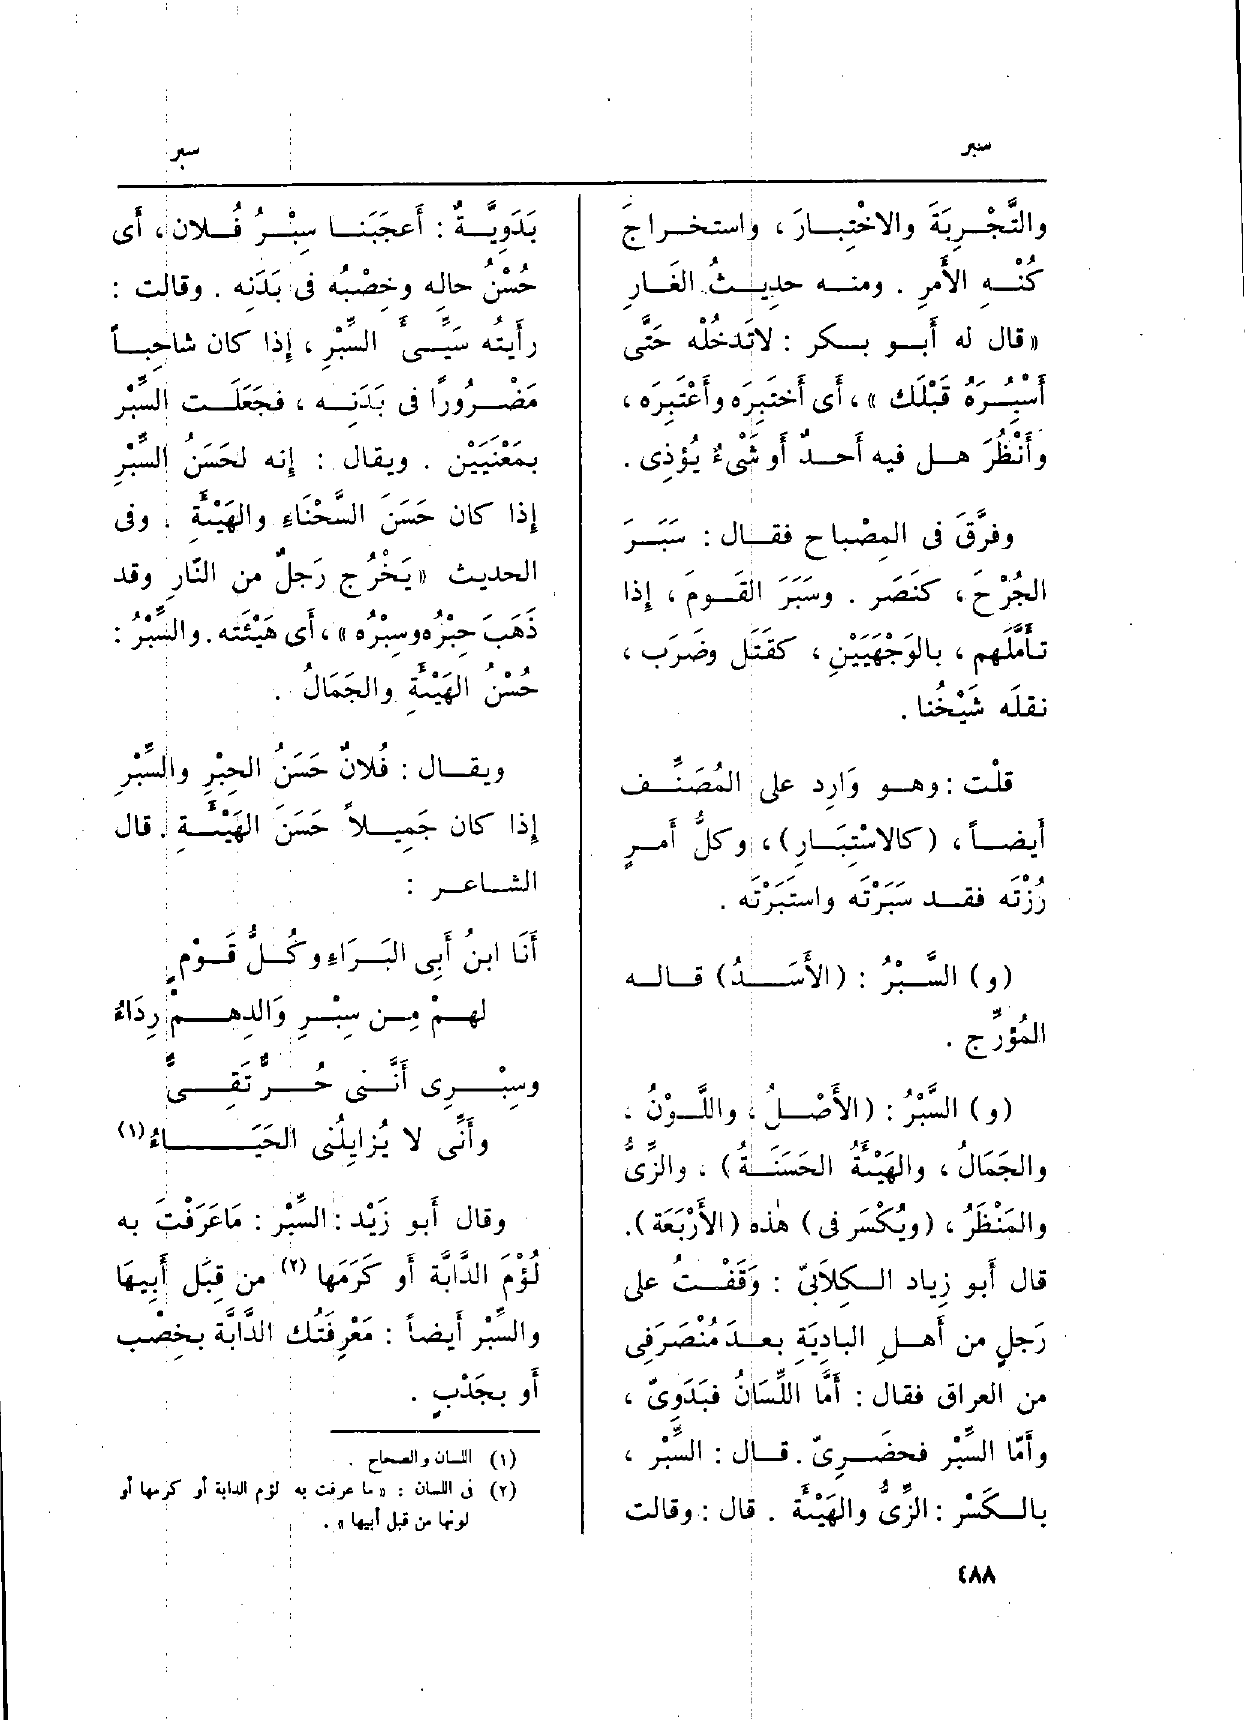 سبر
سبر
والتَّجْرِبَةَ والاخْتِبارَ ، واستخراجَ
كُنْهِ الأَمرِ . ومنه حديثُ الغَارِ
«قال له أَبو بكر : لاتَدخُلْه حَتَّى
أَسْبُرَهُ قَبْلَك » ، أَى أَختَبِرَه وأَعْتَبِرَه ،
وأَنْظُرَ هل فيه أَحدٌ أَو شَىْءٌ يُؤذِى .
وفرَّقَ فى المِصْباح فقال : سَبَرَ
الجُرْحَ ، كنَصَر . وسَبَرَ القَومَ ، إِذا
تأَمَّلَهم ، بالوَجْهَيْنِ ، كقَتَل وضَرَب ،
نقلَه شَيْخُنا .
قلْت : وهو وَارِد على المُصَنِّف
أَيضاً ، (كالاسْتِبَارِ) ، وكلُّ أَمرٍ
رُزْتَه فقد سَبَرْتَه واستَبَرْتَه .
(و) السَّبْرُ : (الأَسَدُ) قاله
المُؤرِّج .
(و) السَّبْرُ : (الأَصْلُ ، واللَّوْنُ ،
والجَمَالُ ، والهَيْئَةُ الحَسَنَةُ) ، والزِّىُّ
والمَنْظَرُ ، (ويُكْسَر فى) هٰذه (الأَرْبَعَة).
قال أَبو زِياد الكِلَابىّ : وَقَفْتُ على
رَجلٍ من أَهلِ البادِيَةِ بعدَ مُنْصَرَفِى
من العراق فقال : أَمَّا اللِّسَانُ فبَدَوِىّ ،
وأَمّا السِّبْر فحضَرِىّ . قال : السِّبْر ،
بالكَسْر : الزِّىُّ والهَيْئة . قال : وقالت
بَدَوِيَّةٌ : أَعجَبَنا سِبْرُ فُلان ، أَى
حُسْنُ حالِه وخِصْبُه فى بَدَنِه . وقالت :
رأَيتُه سَيِّىءَ السِّبْرِ ، إِذا كان شاحِباً
مَضْرُورًا فى بَدَنِه ، فجَعَلَت السِّبْر
بمَعْنَيَيْن . ويقال : إِنه لحَسَنُ السِّبْرِ
إِذا كان حَسَنَ السَّحْنَاءِ والهَيْئَةِ . وفى
الحديث «يَخْرُج رَجلٌ من النّارِ وقد
ذَهَبَ حِبْرُه وسِبْرُه » ، أَى هَيْئَته. والسِّبْرُ :
حُسْنُ الهَيْئَةِ والجَمَالُ .
ويقال : فُلانٌ حَسَنُ الحِبْرِ والسِّبْرِ
إِذا كان جَمِيلاً حَسَنَ الهَيْئَةِ . قال
الشاعر :
أَنَا ابنُ أَبِى البَرَاءِ وكُلُّ قَوْمٍ
لهمْ مِن سِبْرِ وَالدِهمْ رِدَاءُ
وسِبْرِى أَنَّنى حُرٌّ تَقِىٌّ
وأَنِّى لا يُزايِلُنى الحَيَاءُ(١)
وقال أَبو زَيْد : السِّبْر : مَاعَرَفْتَ به
لُؤْمَ الدَّابَّة أَو كَرَمَها (٢) من قِبَل أَبِيهَا
والسِّبْر أَيضاً : مَعْرِفَتُك الدَّابَّة بخِصْب
أَو بجَدْبٍ .
(١) اللسان والصحاح .
(٢) فى اللسان : « ما عرفت به لؤم الدابة أو كرمها أو
لونها من قبل أبيها » .
٤٨٨